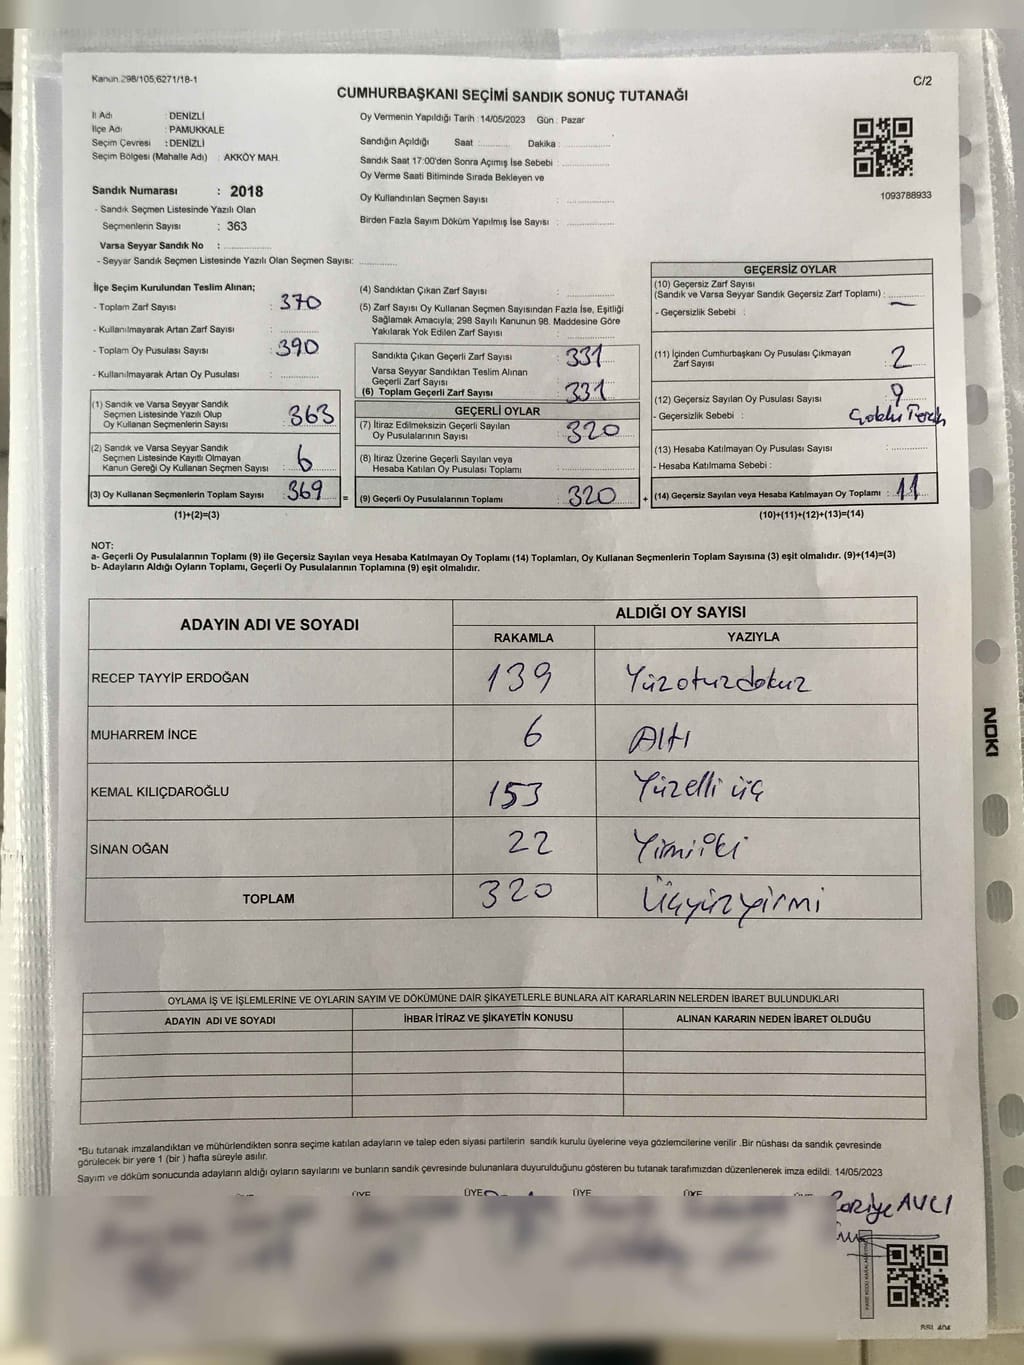 Kanun 298/105,6271/18-1
C/2
CUMHURBAŞKANI SEÇİMİ SANDIK SONUÇ TUTANAĞI
İl Adı : DENİZLİ
İlçe Adı : PAMUKKALE
Seçim Çevresi : DENİZLİ
Seçim Bölgesi (Mahalle Adı) : AKKÖY MAH.
Sandık Numarası : 2018
- Sandık Seçmen Listesinde Yazılı Olan
Seçmenlerin Sayısı : 363
Varsa Seyyar Sandık No : ............
- Seyyar Sandık Seçmen Listesinde Yazılı Olan Seçmen Sayısı: ............
Oy Vermenin Yapıldığı Tarih : 14/05/2023 Gün : Pazar
Sandığın Açıldığı Saat : ............ Dakika : ............
Sandık Saat 17:00'den Sonra Açımış İse Sebebi : ............
Oy Verme Saati Bitiminde Sırada Bekleyen ve
Oy Kullandırılan Seçmen Sayısı : ............
Birden Fazla Sayım Döküm Yapılmış İse Sayısı : ............
1093788933
İlçe Seçim Kurulundan Teslim Alınan;
- Toplam Zarf Sayısı : 370
- Kullanılmayarak Artan Zarf Sayısı : ............
- Toplam Oy Pusulası Sayısı : 390
- Kullanılmayarak Artan Oy Pusulası : ............
(1) Sandık ve Varsa Seyyar Sandık
Seçmen Listesinde Yazılı Olup
Oy Kullanan Seçmenlerin Sayısı : 363
(2) Sandık ve Varsa Seyyar Sandık
Seçmen Listesinde Kayıtlı Olmayan
Kanun Gereği Oy Kullanan Seçmen Sayısı : 6
(3) Oy Kullanan Seçmenlerin Toplam Sayısı : 369
(1)+(2)=(3)
=
(4) Sandıktan Çıkan Zarf Sayısı : ............
(5) Zarf Sayısı Oy Kullanan Seçmen Sayısından Fazla İse, Eşitliği
Sağlamak Amacıyla; 298 Sayılı Kanunun 98. Maddesine Göre
Yakılarak Yok Edilen Zarf Sayısı : ............
Sandıkta Çıkan Geçerli Zarf Sayısı : 331
Varsa Seyyar Sandıktan Teslim Alınan
Geçerli Zarf Sayısı : ............
(6) Toplam Geçerli Zarf Sayısı : 331
GEÇERLİ OYLAR
(7) İtiraz Edilmeksizin Geçerli Sayılan
Oy Pusulalarının Sayısı : 320
(8) İtiraz Üzerine Geçerli Sayılan veya
Hesaba Katılan Oy Pusulası Toplamı : ............
(9) Geçerli Oy Pusulalarının Toplamı : 320
+
GEÇERSİZ OYLAR
(10) Geçersiz Zarf Sayısı
(Sandık ve Varsa Seyyar Sandık Geçersiz Zarf Toplamı) : —
- Geçersizlik Sebebi :
(11) İçinden Cumhurbaşkanı Oy Pusulası Çıkmayan
Zarf Sayısı : 2
(12) Geçersiz Sayılan Oy Pusulası Sayısı : 9
- Geçersizlik Sebebi :
(13) Hesaba Katılmayan Oy Pusulası Sayısı : ............
- Hesaba Katılmama Sebebi :
(14) Geçersiz Sayılan veya Hesaba Katılmayan Oy Toplamı : 11
(10)+(11)+(12)+(13)=(14)
NOT:
a- Geçerli Oy Pusulalarının Toplamı (9) ile Geçersiz Sayılan veya Hesaba Katılmayan Oy Toplamı (14) Toplamları, Oy Kullanan Seçmenlerin Toplam Sayısına (3) eşit olmalıdır. (9)+(14)=(3)
b- Adayların Aldığı Oyların Toplamı, Geçerli Oy Pusulalarının Toplamına (9) eşit olmalıdır.
ADAYIN ADI VE SOYADI ALDIĞI OY SAYISI
RAKAMLA YAZIYLA
RECEP TAYYİP ERDOĞAN 139 Yüzotuzdokuz
MUHARREM İNCE 6 Altı
KEMAL KILIÇDAROĞLU 153 Yüzelli üç
SİNAN OĞAN 22 Yirmi iki
TOPLAM 320 Üçyüzyirmi
OYLAMA İŞ VE İŞLEMLERİNE VE OYLARIN SAYIM VE DÖKÜMÜNE DAİR ŞİKAYETLERLE BUNLARA AİT KARARLARIN NELERDEN İBARET BULUNDUKLARI
ADAYIN ADI VE SOYADI İHBAR İTİRAZ VE ŞİKAYETİN KONUSU ALINAN KARARIN NEDEN İBARET OLDUĞU
*Bu tutanak imzalandıktan ve mühürlendikten sonra seçime katılan adayların ve talep eden siyasi partilerin sandık kurulu üyelerine veya gözlemcilerine verilir .Bir nüshası da sandık çevresinde
görülecek bir yere 1 (bir ) hafta süreyle asılır.
Sayım ve döküm sonucunda adayların aldığı oyların sayılarını ve bunların sandık çevresinde bulunanlara duyurulduğunu gösteren bu tutanak tarafımızdan düzenlenerek imza edildi. 14/05/2023
ÜYE ÜYE ÜYE ÜYE
AVCI
NOKI